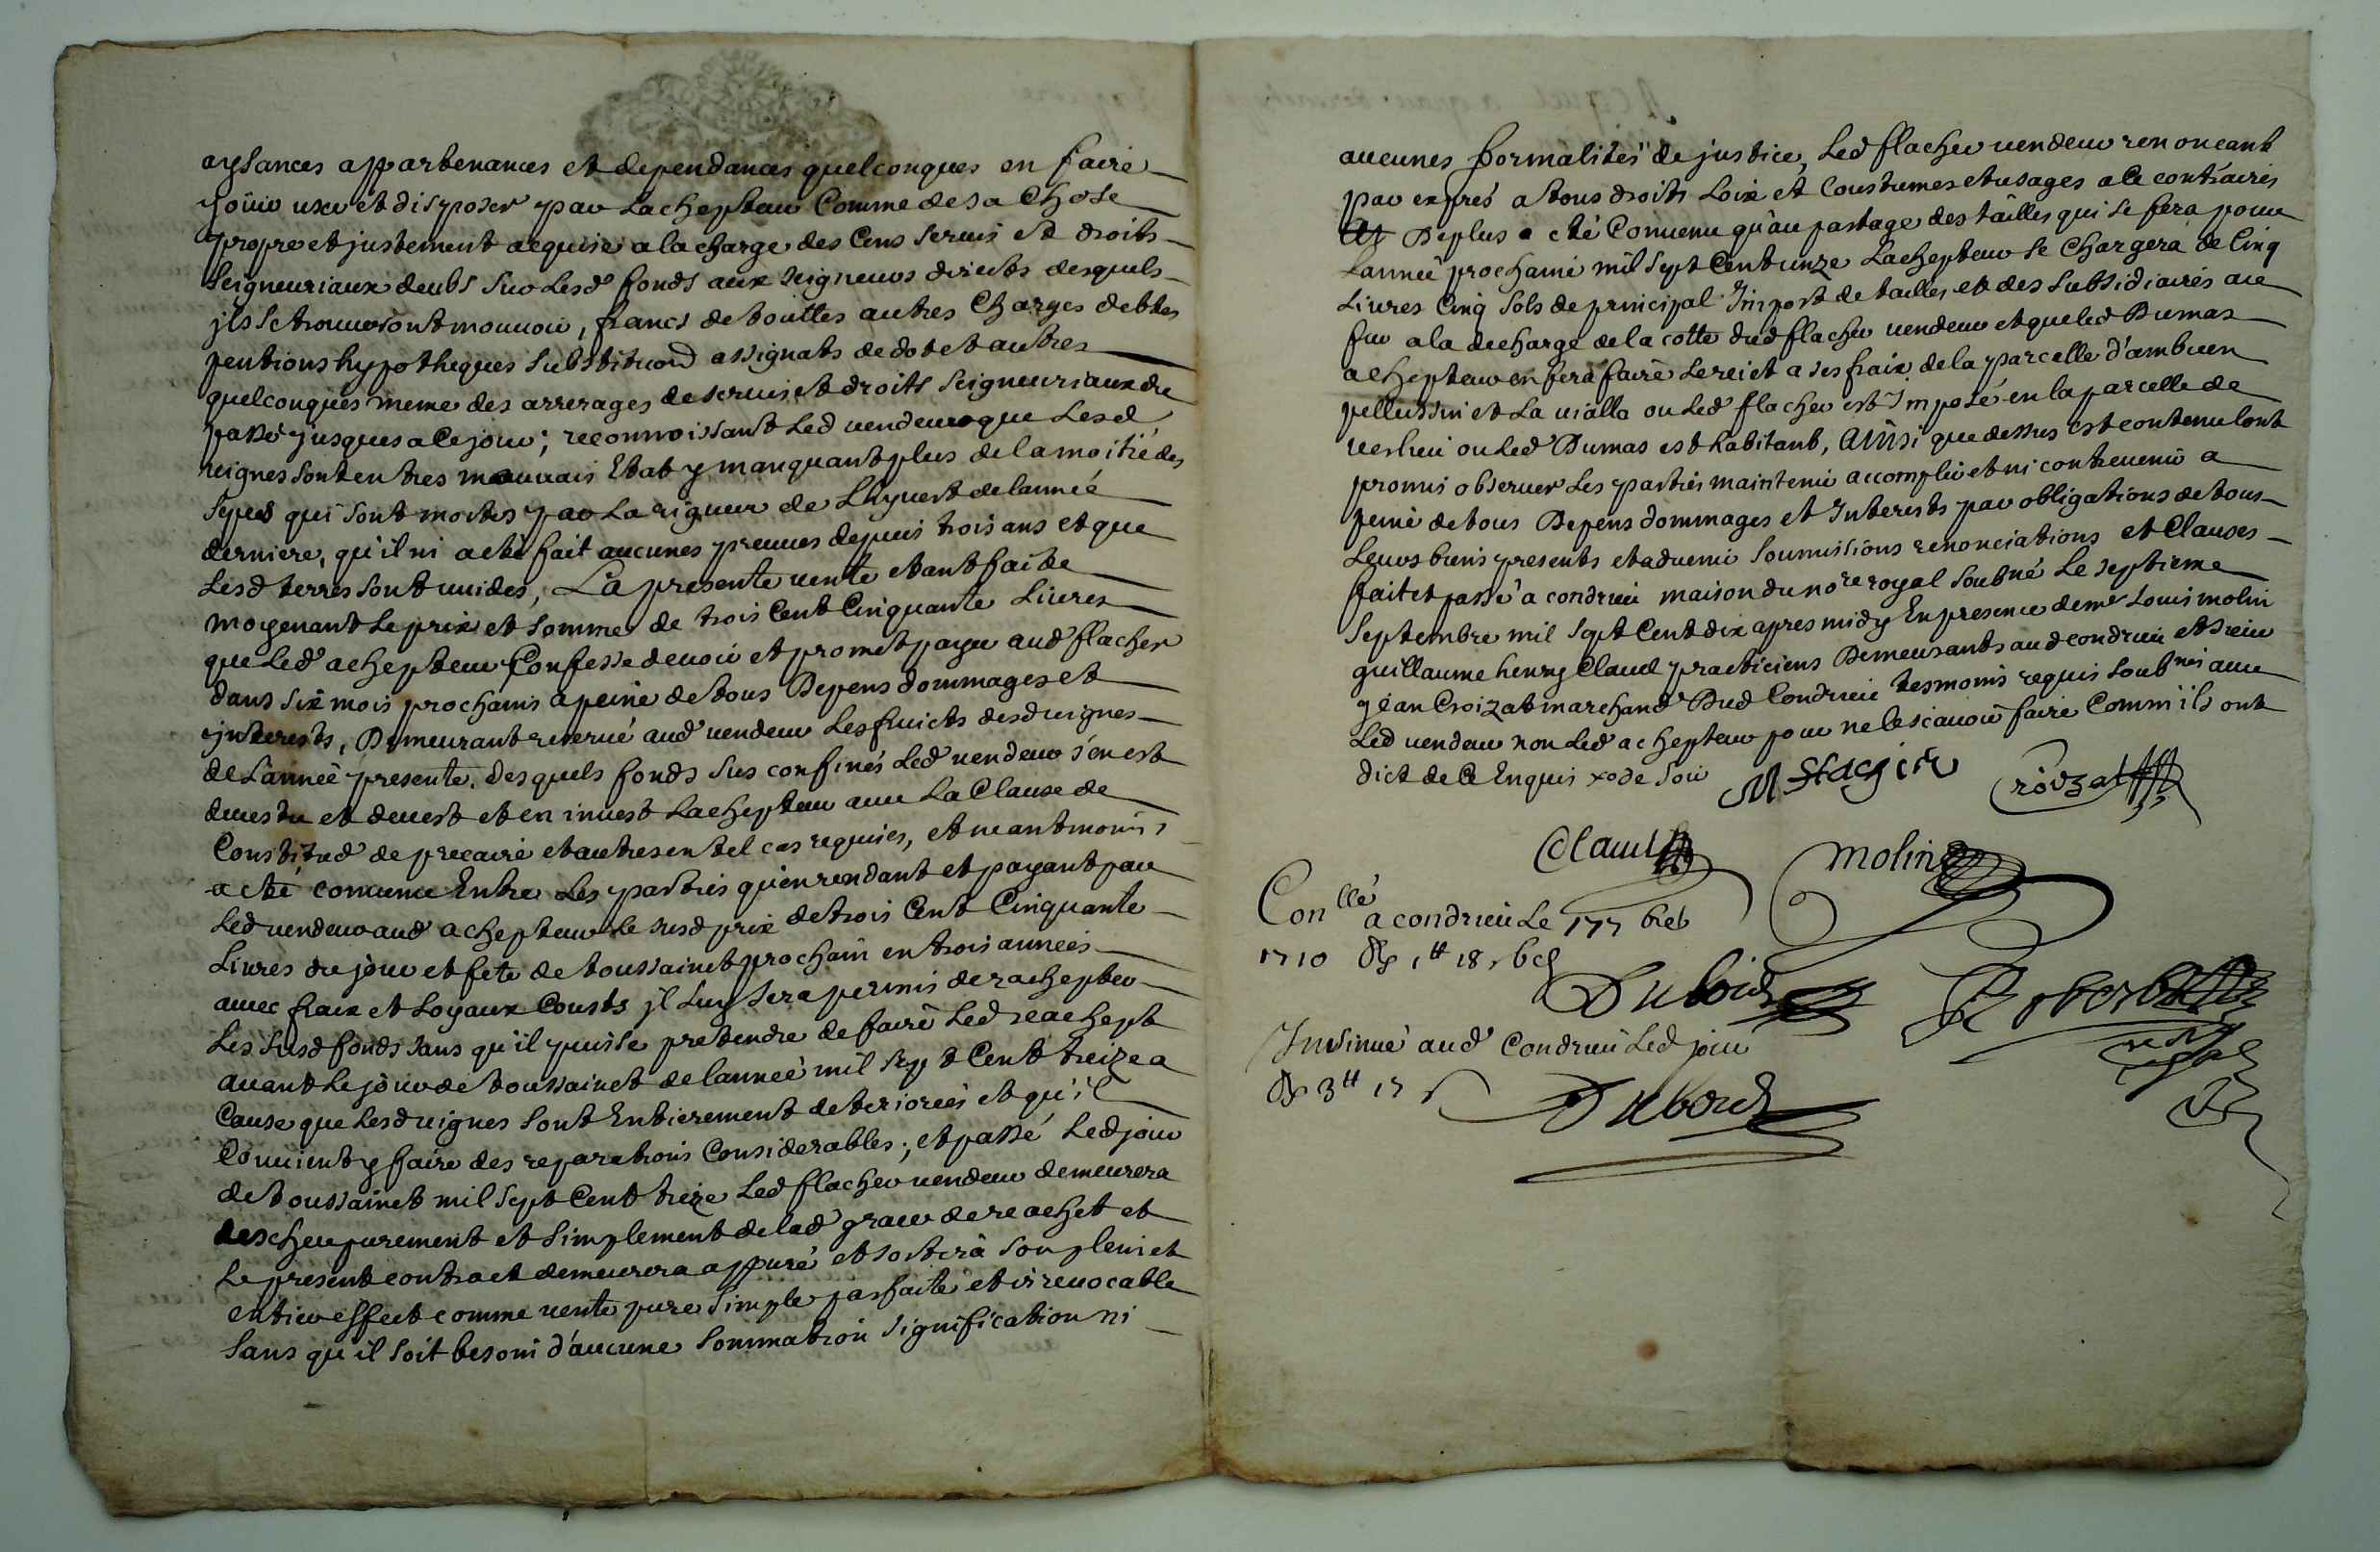 aysances appartenances et dependances quelconques en faire
joüir user et disposer par Lachepteur Comme de sa Chose
propre et justement acquise a la charge des Cens servis et droits
seigneuriaux deubs sur Lesd fonds aux seigneurs directs desquels
jls se trouveront mouvoir, francs de touttes autres Charges debtes
pentions hypotheques substituon assignats de dot et autres
quelconques meme des arrerages de servis et droits seigneuriaux du
passé jusques a Ce jour; reconnoissant Led vendeur que Lesd
vignes sont en tres mauvais Etat y manquant plus de la moitié des
seps qui sont morts par La rigueur de Lhyvert de lannée
derniere, qu'il ni a eté fait aucunes preuves depuis trois ans et que
Lesd terres sont vuides, La presente vente etant faite
moyenant Le prix et somme de trois Cent Cinquante Livres
que Led achepteur Confesse devoir et promet payer aud flacher
dans six mois prochains a peine de tous Depens dommages et
jnterests, Demeurant reservé aud vendeur Les fruicts desd vignes
de Lannée presente. Desquels fonds sus confinés Led vendeur s'en est
devestu et devest et en invest Lachepteur avec La Clause de
Constitud de precaire et autres en tel cas requises, et neantmoins
a eté convenu Entre Les parties qu'en rendant et payant par
Led vendeur aud achepteur Le susd prix de trois Cent Cinquante
Livres du jour et fete de toussainct prochain en trois années
avec fraix et Loyaux Cousts jl Luy sera permis de rachepter
Les susd fonds sans qu'il puisse pretendre de faire Led reachept
avant Le jour de toussainct de lannée mil sept Cent treize a
Cause que Lesd vignes sont Entierement deteriorées et qu'il
Convient y faire des reparations Considerables; et passé Led jour
de toussainct mil sept Cent treize Led flacher vendeur demeurera
descheu purement et simplement de lad grace de reachet et
Le present contract demeurera appuré et sortira son plein et
entier effect comme vente pure simple parfaite et irrevocable
sans qu'il soit besoin d'aucune sommation signification ni
aucunes formalités de justice, Led flacher vendeur renonceant
par exprés a tous droits Loix et Coustumes et usages a Ce contraires
Deplus a eté Convenu qu'au partage des tailles qui se fera pour
Lannée prochaine mil sept Cent unze Lachepteur se Chargera de Cinq
Livres Cinq sols de principal Impost de tailles et des subsidiaires au
fur a la decharge de la cotte dud flacher vendeur et que led Dumas
achepteur en fera faire Le reiet a ses fraix de la parcelle d'ambuen
pellussin et La vialla ou Led flacher est Imposé en la parcelle de
verlieu ou Led Dumas est habitant, Ainsi que dessus est contenu lont
promis observer Les parties maintenir accomplir et ni contrevenir a
peine de tous Depens dommages et Interests par obligations de tous
Leurs biens presents et advenir soumissions renonciations et Clauses
fait et passé a condrieu maison du nore royal soubné Le septieme
septembre mil sept Cent dix apres midy En presence de me Louis molin
guillaume henry Claud practiciens Demeurants aud condrieu et sieur
jean Croizat marchand Dud Condrieu tesmoins requis soubnés avec
Led vendeur non Led achepteur pour ne le scavoir faire Comm'ils ont
dict de Ce Enquis
M flacher Croizat
Claud Molin
Conllé a condrieu Le 17 7bre
1710
Dubois Robert
Insinué aud Condrieu Led jour
Dubois